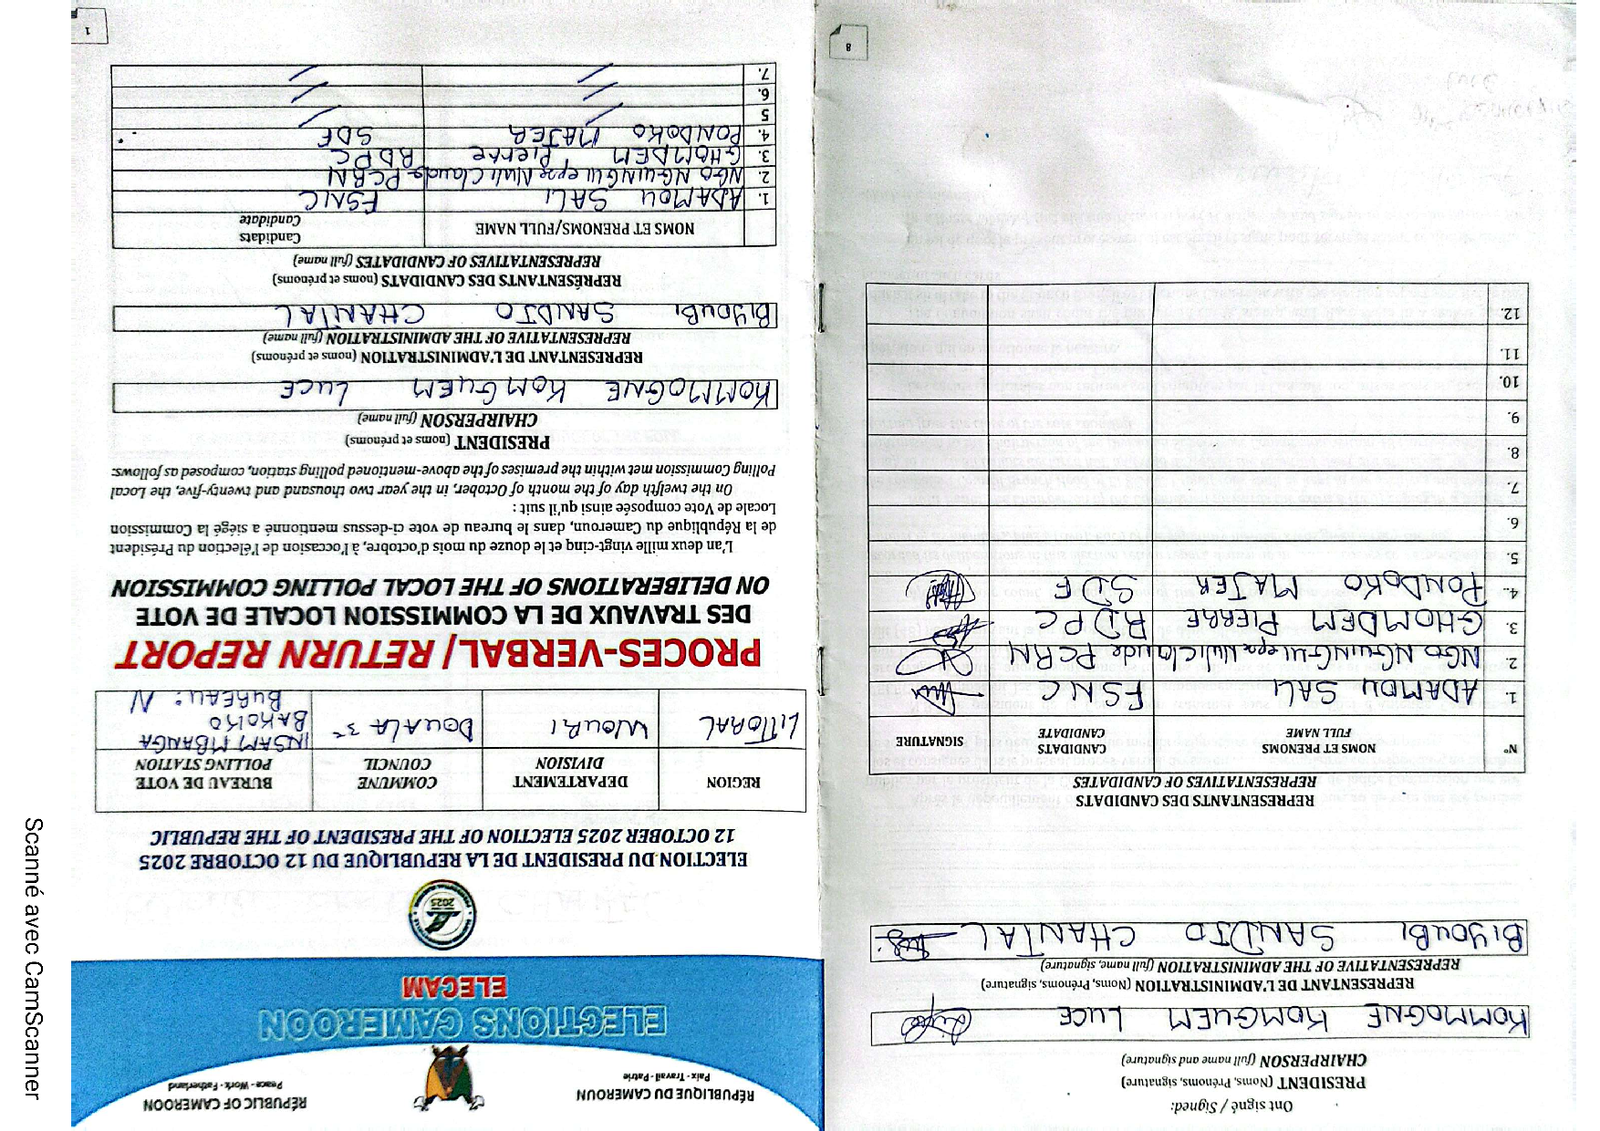 RÉPUBLIQUE DU CAMEROUN
Paix - Travail - Patrie
RÉPUBLIC OF CAMEROON
Peace - Work - Fatherland
ELECTIONS CAMEROON
ELECAM
2025
ELECTION DU PRESIDENT DE LA REPUBLIQUE DU 12 OCTOBRE 2025
12 OCTOBER 2025 ELECTION OF THE PRESIDENT OF THE REPUBLIC
REGION
DEPARTEMENT
DIVISION
COMMUNE
COUNCIL
BUREAU DE VOTE
POLLING STATION
LITTORAL
WOURI
DOUALA 3e
INSAM MBANGA
BAKOKO
BUREAU: N
PROCES-VERBAL/ RETURN REPORT
DES TRAVAUX DE LA COMMISSION LOCALE DE VOTE
ON DELIBERATIONS OF THE LOCAL POLLING COMMISSION
L'an deux mille vingt-cinq et le douze du mois d'octobre, à l'occasion de l'élection du Président
de la République du Cameroun, dans le bureau de vote ci-dessus mentionné a siégé la Commission
Locale de Vote composée ainsi qu'il suit :
On the twelfth day of the month of October, in the year two thousand and twenty-five, the Local
Polling Commission met within the premises of the above-mentioned polling station, composed as follows:
PRESIDENT (noms et prénoms)
CHAIRPERSON (full name)
KOMMOGNE KOMGUEM LUCE
REPRESENTANT DE L'ADMINISTRATION (noms et prénoms)
REPRESENTATIVE OF THE ADMINISTRATION (full name)
BIYOUBI SANDJO CHANTAL
REPRÉSENTANTS DES CANDIDATS (noms et prénoms)
REPRESENTATIVES OF CANDIDATES (full name)
NOMS ET PRENOMS/FULL NAME
Candidats
Candidate
1. ADAMOU SALI FSNC
2. NGO NGUINGUI epse Nuli Claude PCRN
3. GHOMDEM Pierre RDPC
4. PONDOKO MAJER SDF
5
6.
7.
1
Ont signé / Signed:
PRESIDENT (Noms, Prénoms, signature)
CHAIRPERSON (full name and signature)
KOMMOGNE KOMGUEM LUCE
REPRESENTANT DE L'ADMINISTRATION (Noms, Prénoms, signature)
REPRESENTATIVE OF THE ADMINISTRATION (full name, signature)
BIYOUBI SANDJO CHANTAL
REPRESENTANTS DES CANDIDATS
REPRESENTATIVES OF CANDIDATES
N°
NOMS ET PRENOMS
FULL NAME
CANDIDATS
CANDIDATE
SIGNATURE
1 ADAMOU SALI FSNC
2. NGO NGUINGUI epse Nuli Claude PCRN
3. GHOMDEM PIERRE RDPC
4. PONDOKO MAJER SDF
5.
6.
7.
8.
9.
10.
11.
12.
8
Scanné avec CamScanner